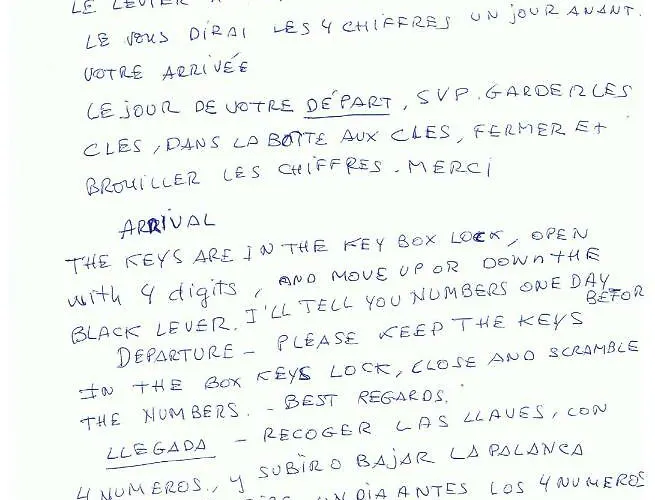 LE LEVIER
LE VOUS DIRAI LES 4 CHIFFRES UN JOUR AVANT.
VOTRE ARRIVÉE
LE JOUR DE VOTRE DÉPART, SVP. GARDER LES
CLES, DANS LA BOÎTE AUX CLES, FERMER ET
BROUILLER LES CHIFFRES. MERCI
ARRIVAL
THE KEYS ARE IN THE KEY BOX LOCK, OPEN
with 4 digits, AND MOVE UP OR DOWN THE
BLACK LEVER. I'LL TELL YOU NUMBERS ONE DAY
BEFOR
DEPARTURE - PLEASE KEEP THE KEYS
IN THE BOX KEYS LOCK, CLOSE AND SCRAMBLE
THE NUMBERS. - BEST REGARDS.
LLEGADA - RECOGER LAS LLAVES, CON
4 NUMEROS., Y SUBIR O BAJAR LA PALANCA
UN DIA ANTES LOS 4 NUMEROS